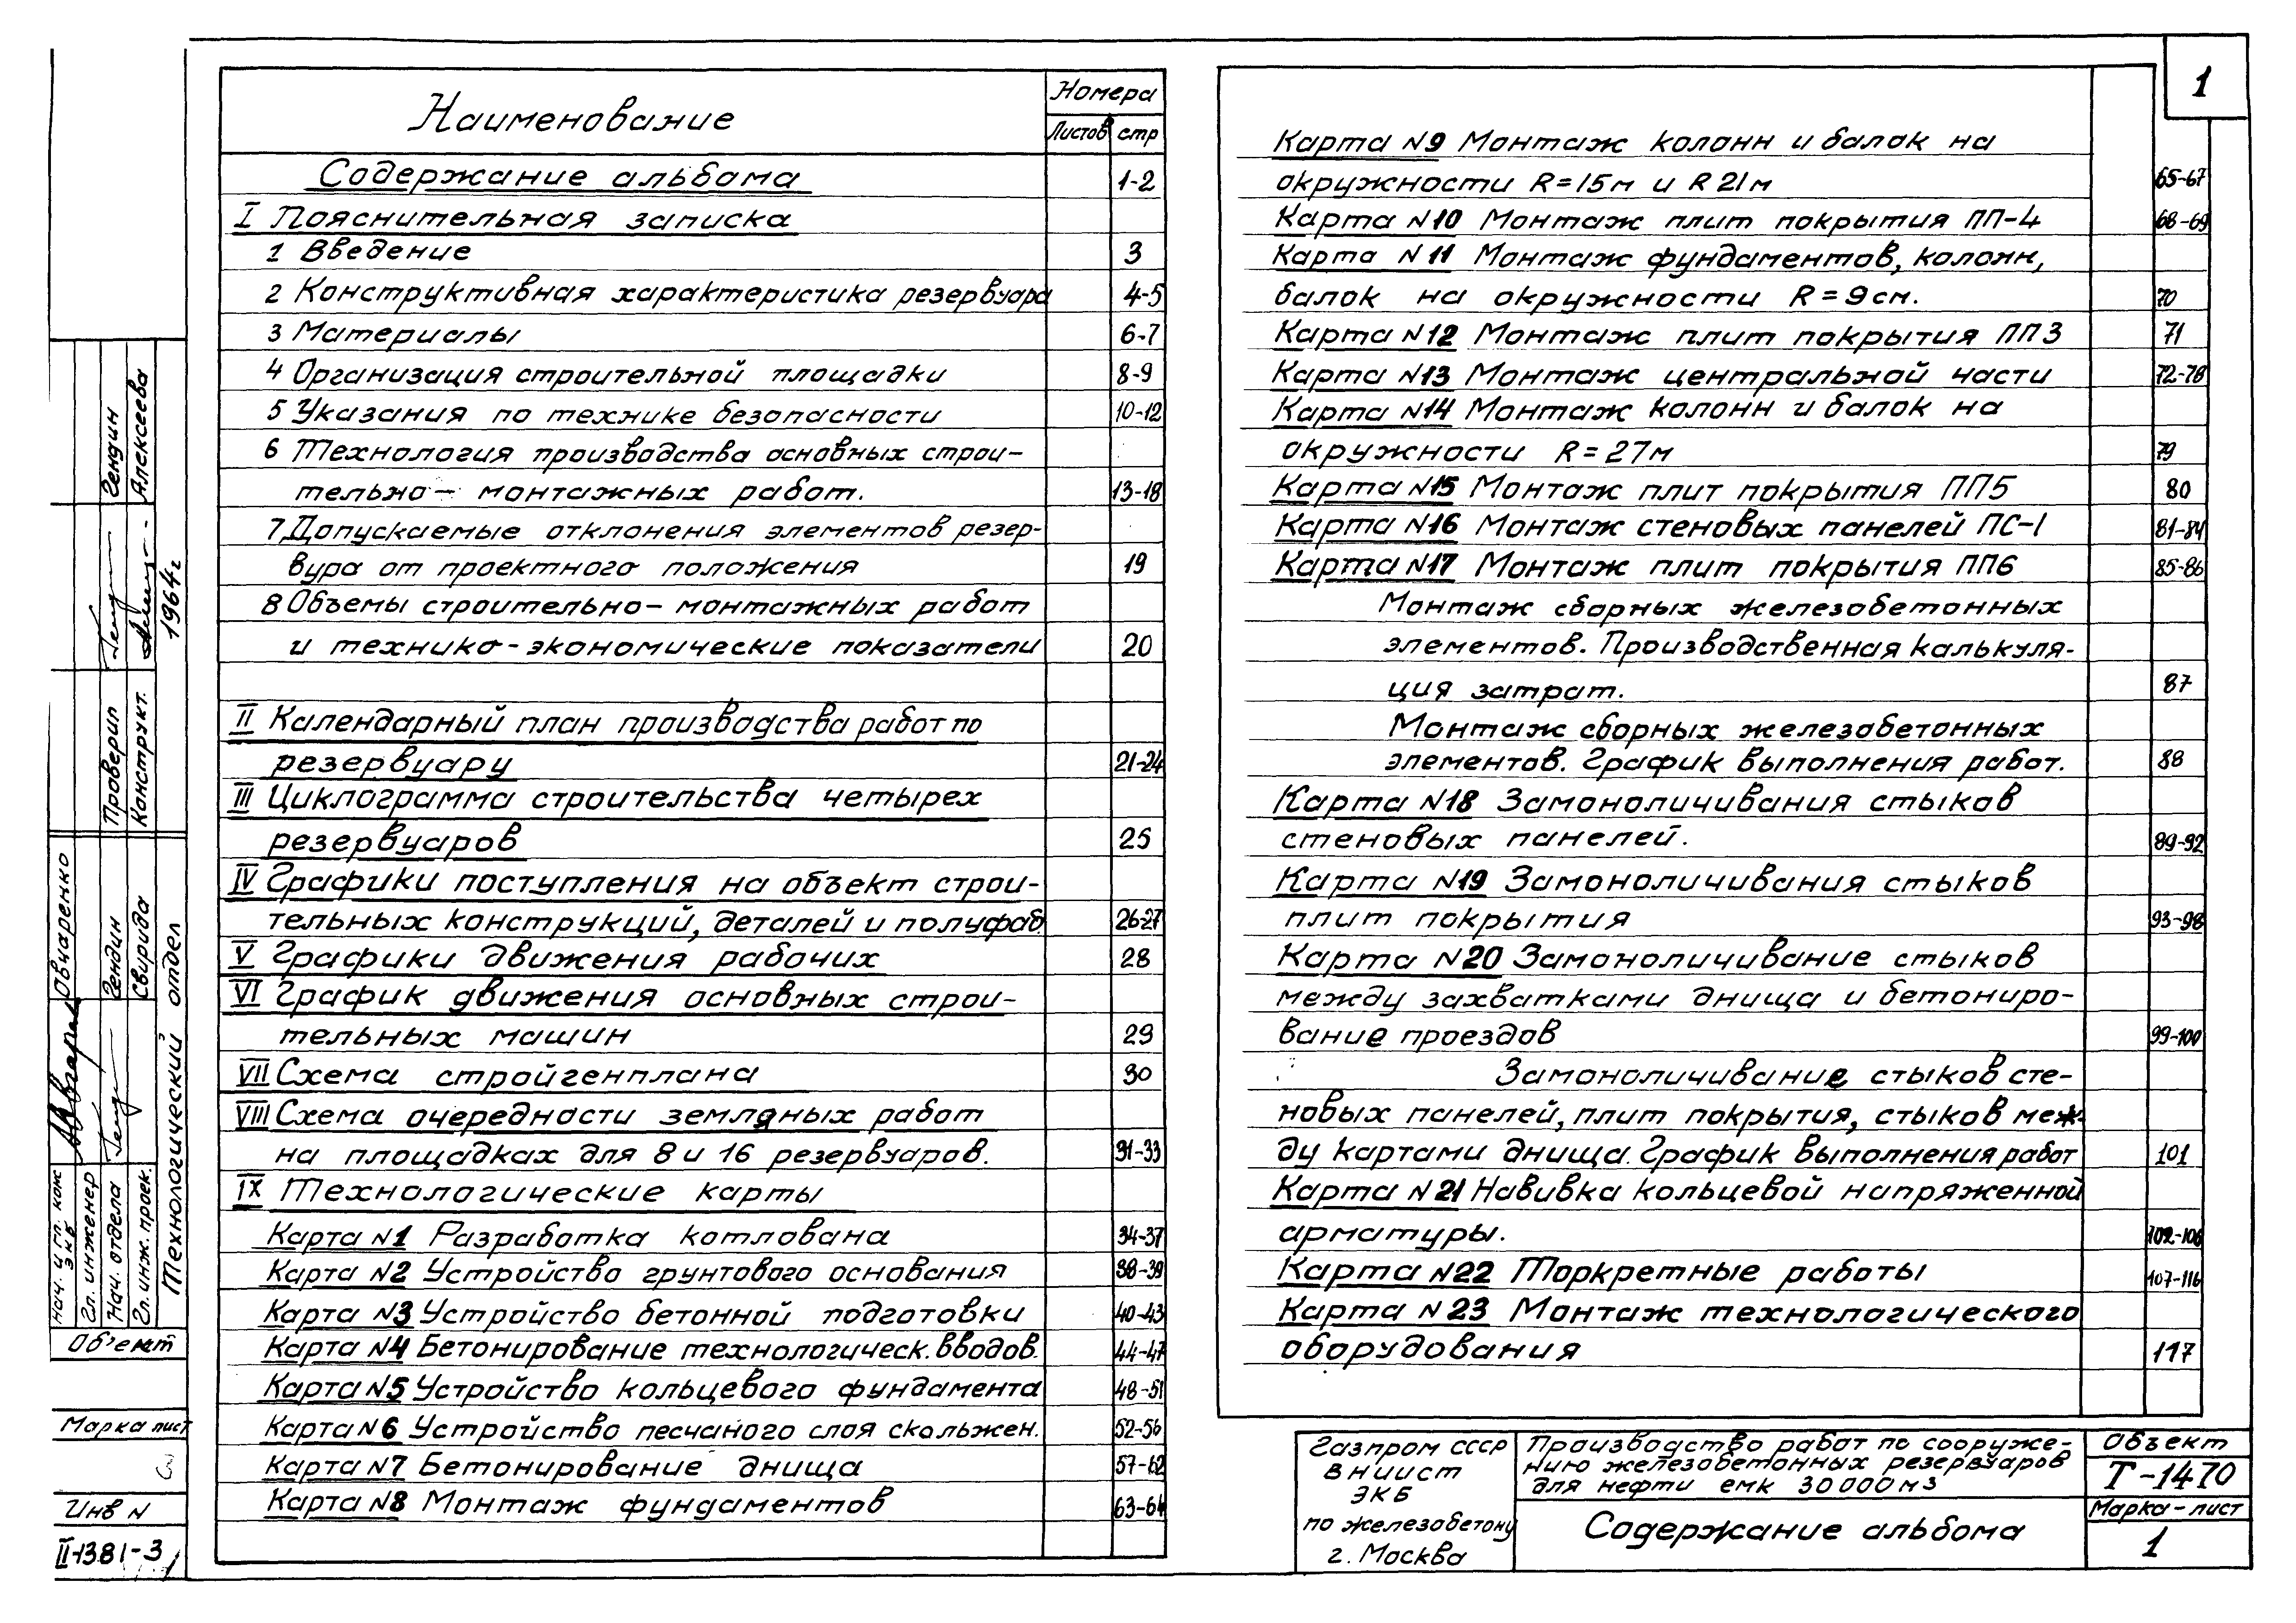 1
Наименование
Номера
Листов стр
Содержание альбома 1-2
I Пояснительная записка
1 Введение 3
2 Конструктивная характеристика резервуара 4-5
3 Материалы 6-7
4 Организация строительной площадки 8-9
5 Указания по технике безопасности 10-12
6 Технология производства основных строи-
тельно- монтажных работ. 13-18
7. Допускаемые отклонения элементов резер-
вуара от проектного положения 19
8 Объемы строительно-монтажных работ
и технико-экономические показатели 20
II Календарный план производства работ по
резервуару 21-24
III Циклограмма строительства четырех
резервуаров 25
IV Графики поступления на объект строи-
тельных конструкций, деталей и полуфаб. 26-27
V Графики движения рабочих 28
VI График движения основных строи-
тельных машин 29
VII Схема стройгенплана 30
VIII Схема очередности земляных работ
на площадках для 8 и 16 резервуаров. 31-33
IX Технологические карты
Карта N1 Разработка котлована 34-37
Карта N2 Устройство грунтового основания 38-39
Карта N3 Устройство бетонной подготовки 40-43
Карта N4 Бетонирование технологическ. вводов. 44-47
Карта N5 Устройство кольцевого фундамента 48-51
Карта N6 Устройство песчаного слоя скольжен. 52-56
Карта N7 Бетонирование днища 57-62
Карта N8 Монтаж фундаментов 63-64
Карта N9 Монтаж колонн и балок на
окружности R=15м и R 21м 65-67
Карта N10 Монтаж плит покрытия ПП-4 68-69
Карта N11 Монтаж фундаментов, колонн,
балок на окружности R=9см. 70
Карта N12 Монтаж плит покрытия ПП3 71
Карта N13 Монтаж центральной части 72-78
Карта N14 Монтаж колонн и балок на
окружности R=27м 79
Карта N15 Монтаж плит покрытия ПП5 80
Карта N16 Монтаж стеновых панелей ПС-1 81-84
Карта N17 Монтаж плит покрытия ПП6 85-86
Монтаж сборных железобетонных
элементов. Производственная калькуля-
ция затрат. 87
Монтаж сборных железобетонных
элементов. График выполнения работ. 88
Карта N18 Замоноличивания стыков
стеновых панелей. 89-92
Карта N19 Замоноличивания стыков
плит покрытия 93-98
Карта N20 Замоноличивание стыков
между захватками днища и бетониро-
вание проездов 99-100
Замоноличивание стыков сте-
новых панелей, плит покрытия, стыков меж-
ду картами днища. График выполнения работ 101
Карта N21 Навивка кольцевой напряженной
арматуры. 102-106
Карта N22 Торкретные работы 107-116
Карта N23 Монтаж технологического
оборудования 117
Газпром СССР
ВНИИСТ
ЭКБ
по железобетону
г. Москва
Производство работ по сооруже-
нию железобетонных резервуаров
для нефти емк 30000м3
Содержание альбома
Объект
Т-1470
Марка-лист
1
Гендин
Алексеева
1964г
Проверил
Конструкт.
Овчаренко
Гендин
Свирида
Технологический отдел
Нач. и гл. конс
ЭКБ
Гл. инженер
Нач. отдела
Гл. инж. проек.
Объект
Марка лист
3
Инв N
II-1381-3